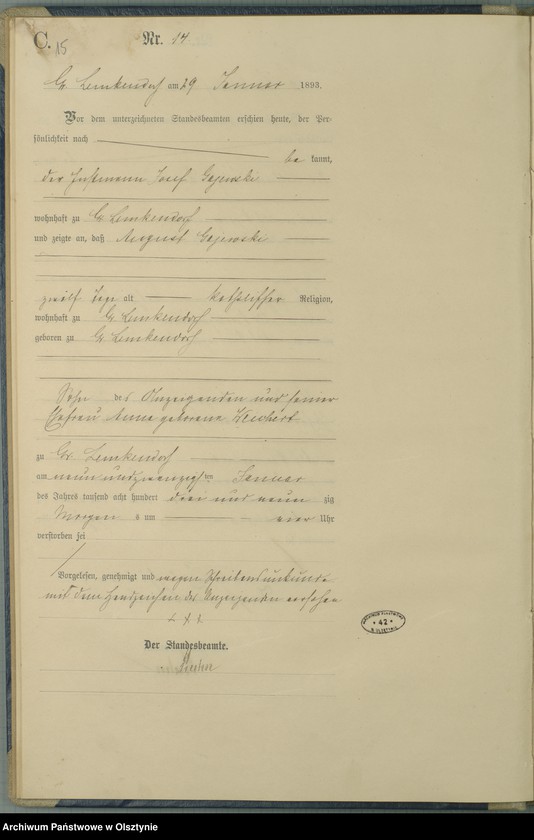 C. 15
Nr. 14
Gr. Lemkendorf am 29 Januar 1893.
Vor dem unterzeichneten Standesbeamten erschien heute, der Per-
sönlichkeit nach
be kannt,
der Instmann Josef Gajewski
wohnhaft zu Gr. Lemkendorf
und zeigte an, daß August Gajewski
zwölf Tage alt katholischer Religion,
wohnhaft zu Gr. Lemkendorf
geboren zu Gr. Lemkendorf
Sohn des Anzeigenden und seiner
Ehefrau Anna geborene
zu Gr. Lemkendorf
am neun und zwanzig ten Januar
des Jahres tausend acht hundert drei und neun zig
Morgen s um vier Uhr
verstorben sei
Vorgelesen, genehmigt und wegen Schreibensunkunde
mit dem Handzeichen des Anzeigenden versehen
+ X +
Der Standesbeamte.
42
Archiwum Państwowe w Olsztynie